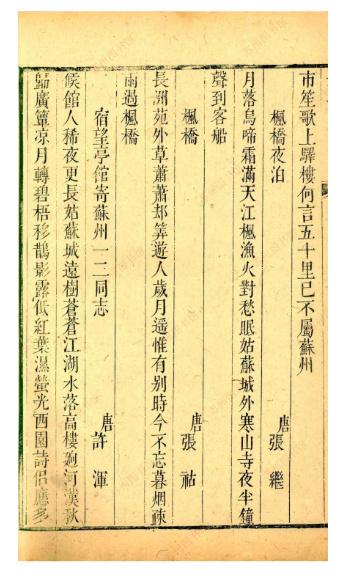 市笙歌上驛樓何言五十里已不屬蘇州
楓橋夜泊
唐張繼
月落烏啼霜滿天江楓漁火對愁眠姑蘇城外寒山寺夜半鐘
聲到客船
楓橋
唐張祜
長洲苑外草蕭蕭却筭遊人歲月遥惟有别時今不忘暮烟疎
雨過楓橋
宿望亭館寄蘇州一二同志
唐許渾
候館人稀夜更長姑蘇城遠樹蒼蒼江湖水落高樓迥河漢秋
歸廣簟凉月轉碧梧移鵲影露低紅葉濕螢光西園詩侶應多